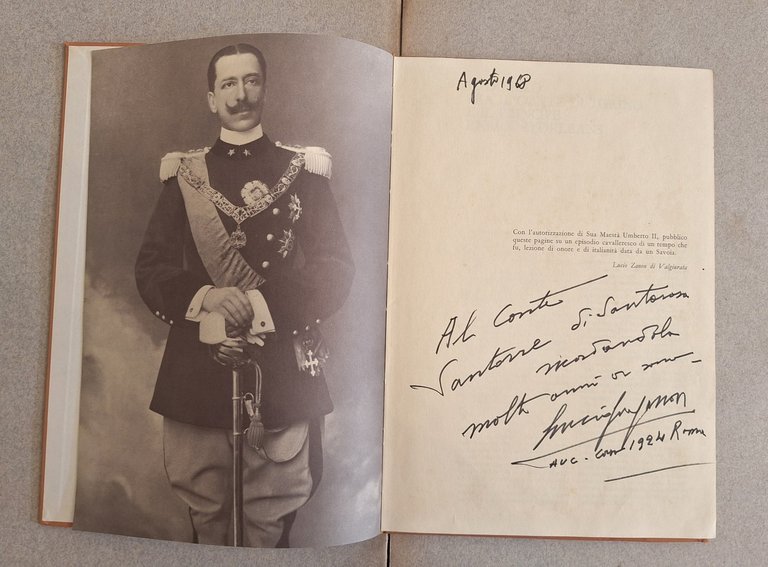 Agosto 1968
Con l'autorizzazione di Sua Maestà Umberto II, pubblico
queste pagine su un episodio cavalleresco di un tempo che
fu, lezione di onore e di italianità data da un Savoia.
Lucio Zanon di Valgiurata
Al Conte
Santorre di Santarosa
ricordandola
molti anni or
1924 Roma